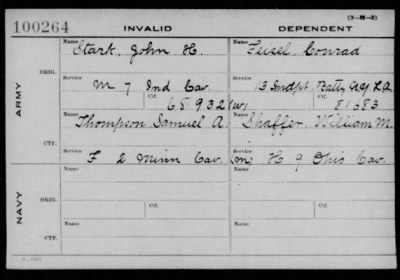 (3-H-3)
100264 INVALID DEPENDENT
Name Name
Stark, John H. Feisel, Conrad
ORIG.
Service Service
M 7 Ind Cav. 13 Indpt. Batty
Ctf. Ctf.
65932 (W) 81683
ARMY
Name Name
Thompson Samuel A. Shaffer, William M.
CTF.
Service Service
F 2 Minn Cav. (m) H 9 Ohio Cav.
Name Name
ORIG.
Ctf. Ctf.
NAVY
Name Name
CTF.